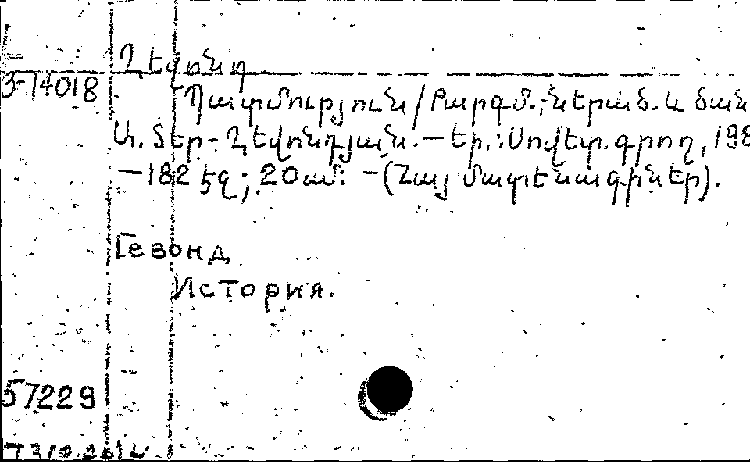 Ղևոնդ
Յ-14018
Պատմություն / Բարգմ., ներած. և ծան
Ա. Տեր-Ղևոնդյան. — Եր.: Սովետ. գրող, 198
— 182 էջ; 20սմ. - (Հայ մատենագիրներ).
Гевонд
История.
57229